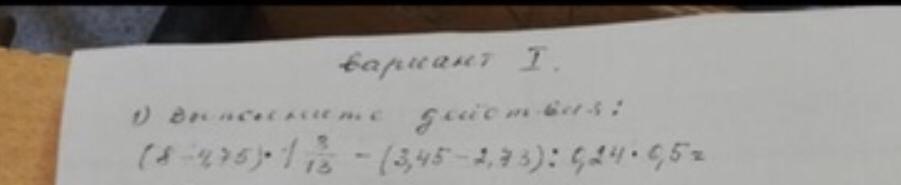 Вариант I.
1) Выполните действия:
(8-4,75)·1 3/13 - (3,45-2,73):0,24·0,5=